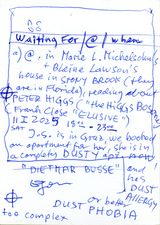 Waiting For /@/ when
a) @, in Marie L. Michelsohn's
+ Blaine Lawson's
house in STONY BROOK (they
are in Florida), reading about
PETER HIGGS ("the HIGGS BOS
Frank Close "ELUSIVE")
1 II 2025 18 - 23
SAT
J.S. is in Graz, we booked
an apartment for her, she is in
a completely DUSTY apt. now
"DIETMAR BUSSE" and!
he's
DUST
ALLERGY
DUST or better
PHOBIA
too complex